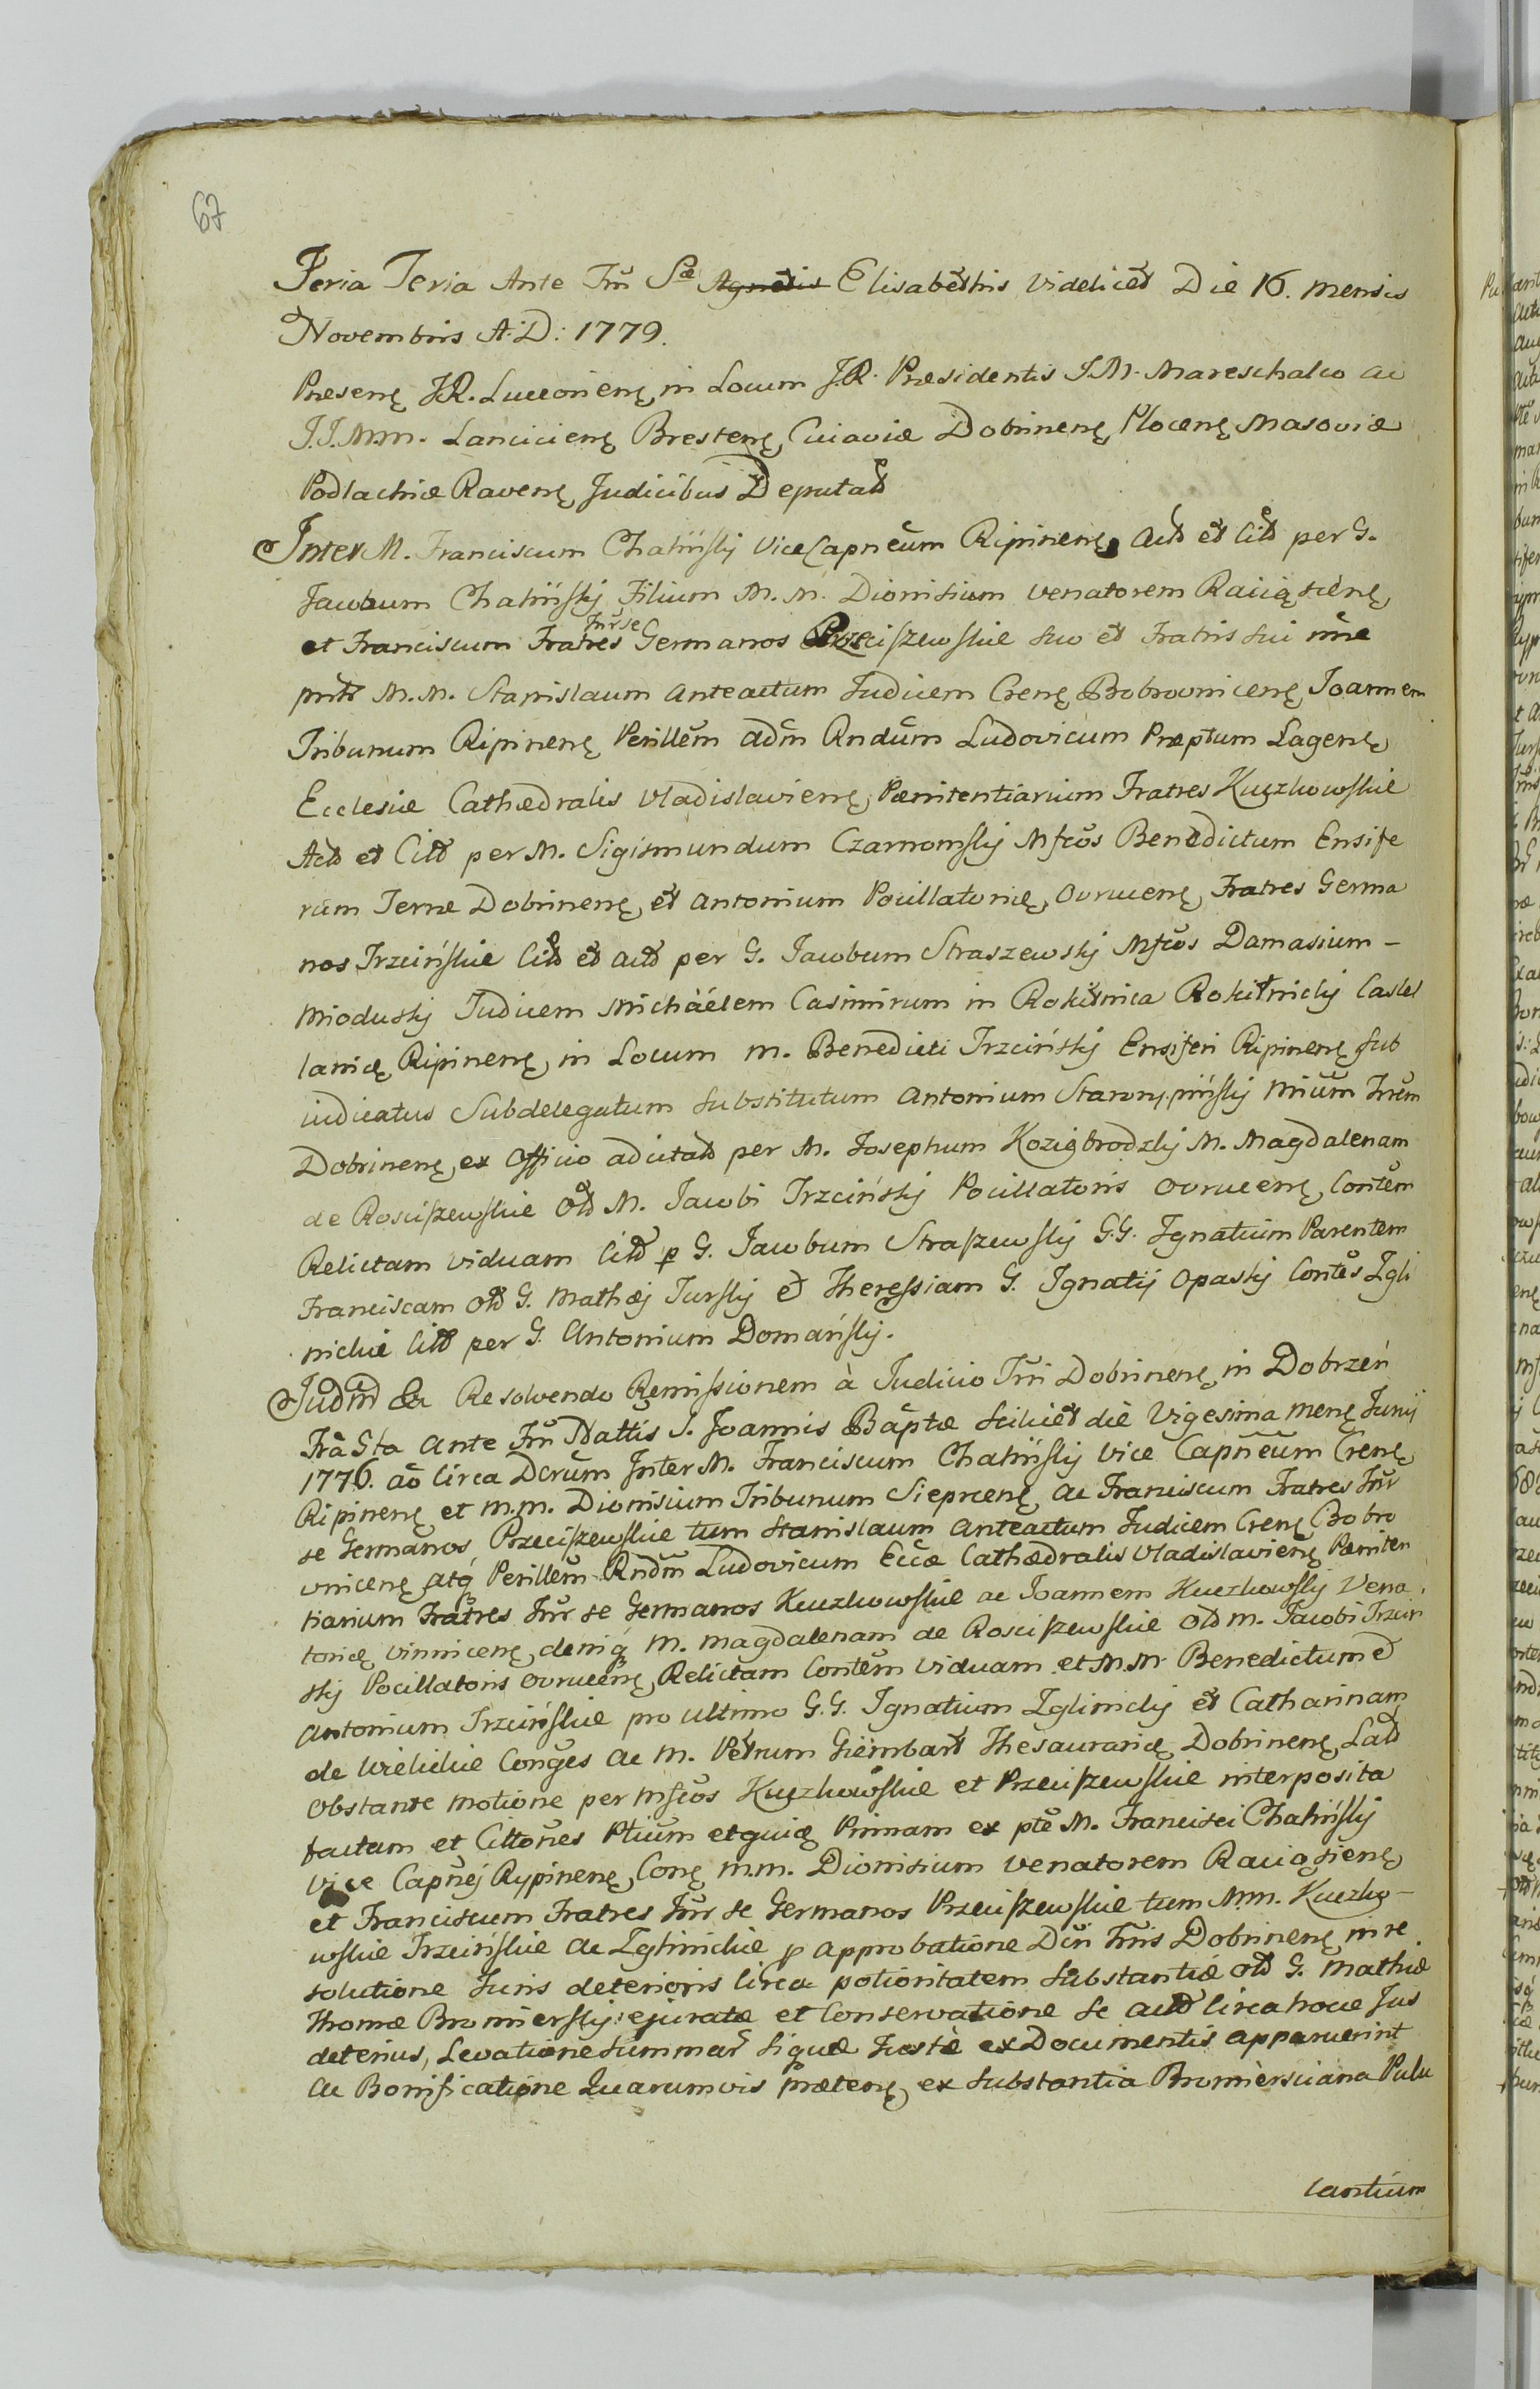 67
Feria Teria Ante Fm̃ Sæ Agnetis Elisabethis videlicet Die 16. mensis
Novembris A. D: 1779.
Præsenę JR. Luceorienę, in Locum JR. Præsidentis I.M. Mareschalco ac
J.J. Mm. Lancicienę Brestenę, Cuiaviæ Dobrinenę, Plocenę Masoviæ
Podlachiæ Ravenę Judicibus Deputat
Inter M. Franciscum Chaliński ViceCapneum Ripinenę Act et Cit per G.
Jacobum Chaliński Filium M. M. Dionisium Venatorem Raciąsienę,
Inr̃ se
et Franciscum Fratres Germanos Przeciszewskie suo et Fratris sui nñe
M. M. Stanislaum Anteactum Judicem Crenę Bobrownicenę, Joannem
Tribunum Ripinenę Perillem̃ adm̃ Rndum̃ Ludovicum Præptum Lagenę
Ecclesiæ Cathædralis Vladislavienę, Pænitentiarium Fratres Kuczkowskie
Act et Cit per M. Sigismundum Czarnomski Mfcos Benedictum Ensife
rum Terræ Dobrinenę, et Antonium Pocillatorię, Ovrucenę, Fratres Germa
nos Trzcińskie Cit et act per G. Jacobum Straszewski Mfcos Damasium –
Mioduski Judicem Michäélem Casimirum in Rokitnica Rokitnicki Castel
lanię, Ripinenę, in Locum M. Benedicti Trzciński Ensiferi Ripinenę sub
iudicatus Subdelegatum substitutum Antonium Starorypiński
Dobrinenę, ex Officio adcitat per M. Josephum Kozigbrodzki M. Magdalenam
de Rosciszewskie Olt M. Jacobi Trzciński Pocillatoris Ovrucenę, Contem̃
Relictam viduam Cit p G. Jacobum Straszewski G.G. Ignatium Parentem
Franciscam Olt G. Mathæj Turski et Theressiam G. Ignatij Opaski Contes Zgli
nickie Cit per G. Antonium Domański.
Judm̃ Ea Resolvendo Remissionem à Judicio Trri Dobrinenę, in Dobrzeń
Fra Sta Ante Fm̃ Nattis S. Joannis Baptæ scilicet die Vigesima Menę Junij
1776. ao Circa Dcrum̃ Inter M. Franciscum Chaliński Vice Capneum̃ Crenę
Ripinenę et M.M. Dionisium Tribunum Sieprcenę, ac Franciscum Fratres Inr̃
se Germanos Przeciszewskie tum Stanislaum Anteactum Judicem Crenę Bobro
vnicenę atq Perillem̃ Rndm̃ Ludovicum Eccæ Cathædralis Vladislavienę Pæniten
tiarium Fratres Inr̃ se Germanos Kuczkowskie ac Joannem Kuczkowski Vena
torię vinnicenę, deniq M. Magdalenam de Rosciszewskie Olt M. Jacobi Trzcin
ski Pocillatoris Ovrucenę, Relictam Contem̃ viduam et M.M Benedictum et
Antonium Trzcińskie pro ultimo G.G. Ignatium Zglinicki et Catharinam
de Wielickie Conges ac M. Petrum Giembart Thesaurarię Dobrinenę, Lat
Obstante Motione per Mfcos Kuczkowskie et Przeciszewskie interposita
factam et Cittones Ptium̃ etquię Primam ex pte M. Francisci Chaliński
Vice Capnej Rypinenę, Conę M.M. Dionisium Venatorem Raciąsienę
et Franciscum Fratres Inr̃ se Germanos Przeciszewskie tum M.M. Kuczko–
wskie Trzcińskie ac Zglinickie p approbatione Dcri Trris Dobrinenę, in re
solutione Juris deterioris Circa potioritatem substantiæ Olt G. Mathiæ
Thomæ Bromierski ejuratæ et Conservatione se act circa hocce Jus
deterius, Levatione summar̃ siquæ Justè ex Documentis apparuerint
ac Bonificatione Quarumvis prætenę ex substantia Bromiersciana Pulu
lantium